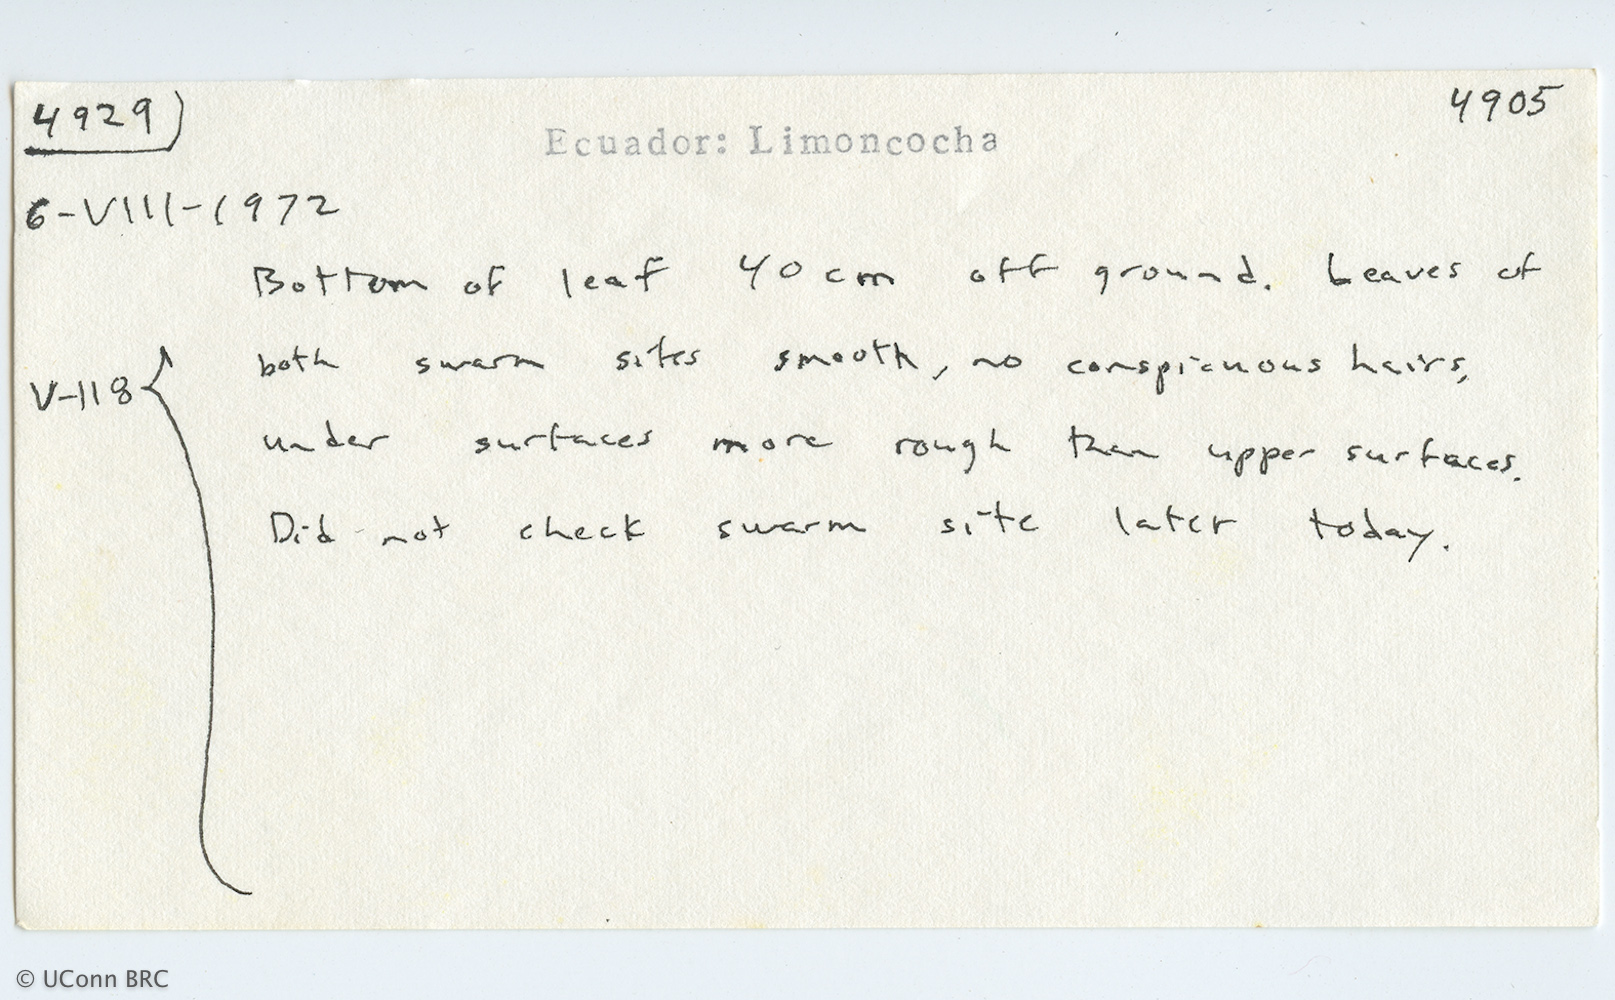 4929)
4905
Ecuador: Limoncocha
6-VIII-1972
Bottom of leaf 40 cm off ground. Leaves of
both swarm sites smooth, no conspicuous hairs,
V-118
under surfaces more rough than upper surfaces.
Did not check swarm site later today.
© UConn BRC